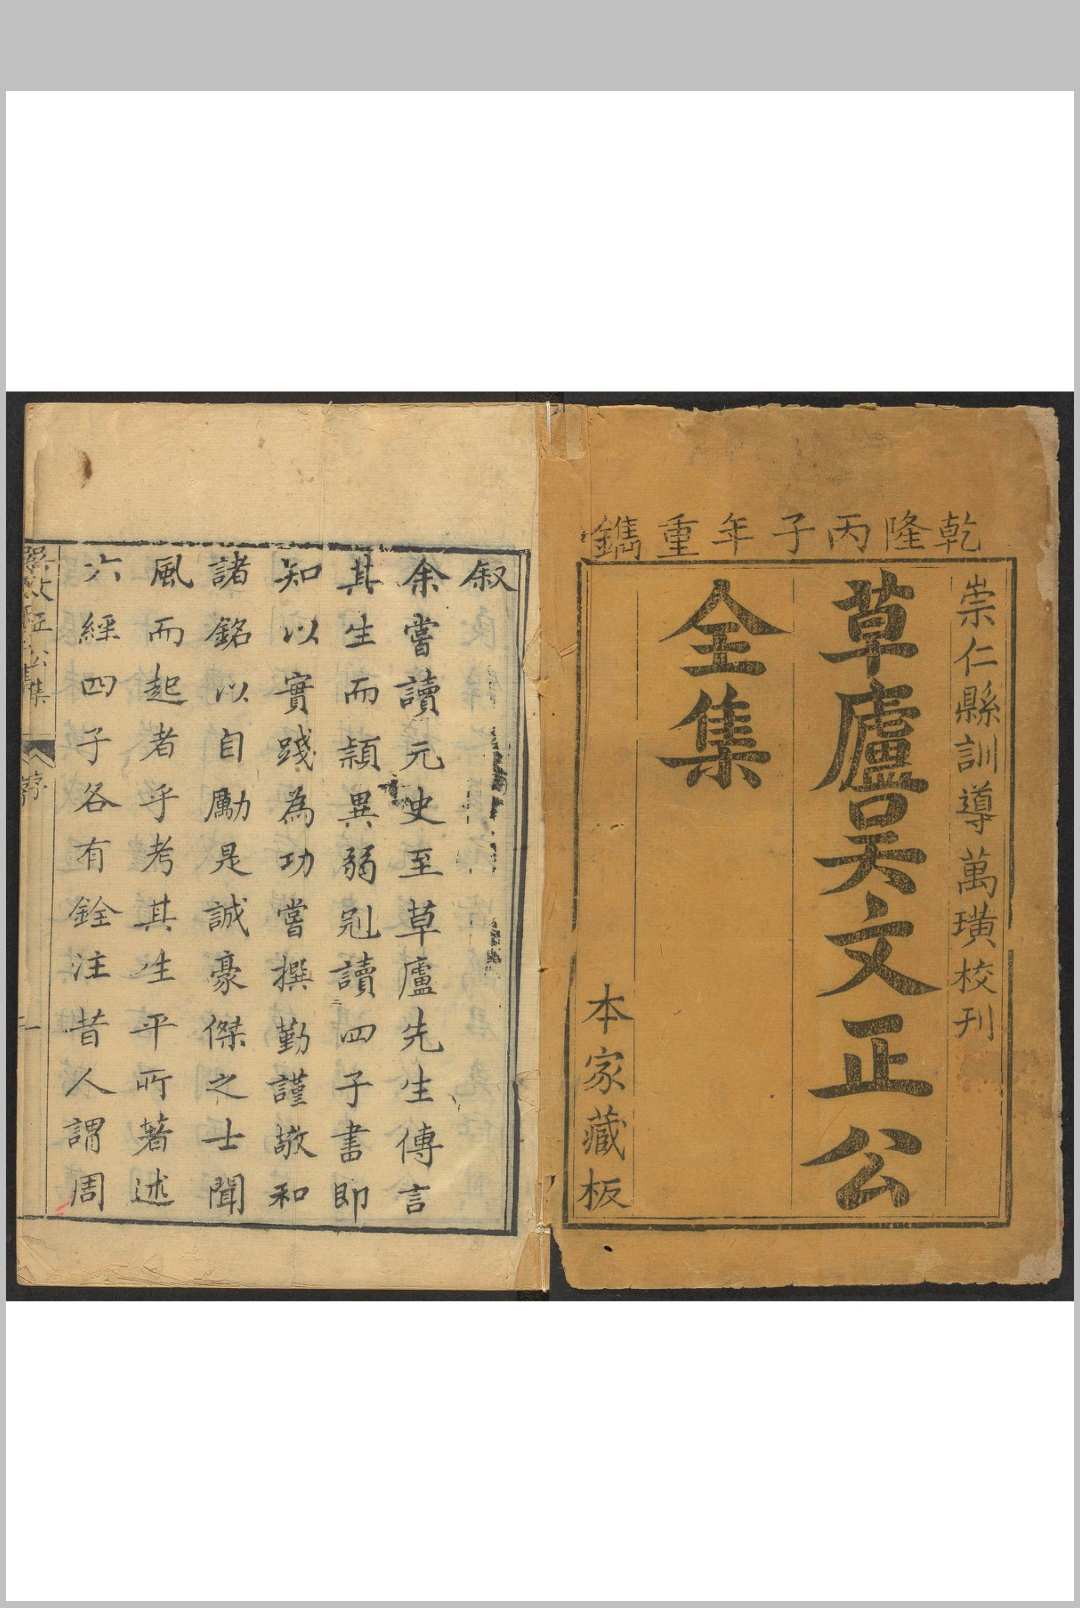 乾隆丙子年重鐫
崇仁縣訓導萬璜校刊
草廬吳文正公
全集
本家藏板
叙
余嘗讀元史至草廬先生傳言
其生而頴異弱冠讀四子書即
知以實踐為功嘗撰勤謹敬和
諸銘以自勵是誠豪傑之士聞
風而起者乎考其生平所著述
六經四子各有銓注昔人謂周
吳文正公集
序
一